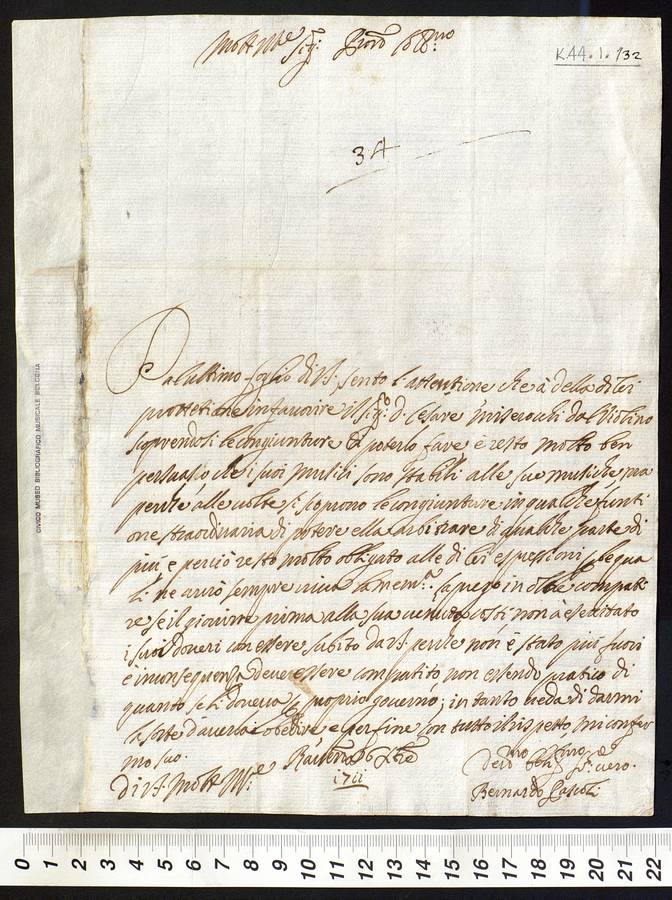 Molt Ill.e Sig.r Pron.
K.44.1.132
3 A
Dal ultimo foglio di V.S. sento l'attentione che à della di lei
prottetione in favorire il Sig.r D. Cesare Miserochi dal Violino
scoprendosi le congiunture di poterlo fare, e resto molto ben
persuaso che i suoi musici sono stabili alle sue musiche, ma
perche alle volte si scoprono le congiunture in qualche funti
one straordinaria di potere ella arbitrare di qualche parte di
più e perciò resto molto obligato alle di lei espressioni, le qua
li ne avrò sempre viva la mem.a La prego in oltre compati
re se il giovine prima alla sua venuta costì non à esercitato
i suoi doveri con essere subito da V.S. perche non è stato più fuori
e in consequenza deve essere compatito non essendo pratico di
quanto se li doveva proprio governo; in tanto veda di darmi
la sorte d'averla a obedire e per fine con tutto il rispetto mi confer
mo suo.
Ravenna 6 Xbre
1711
Di V.S. Molt Ill.e
Bernardo
CIVICO MUSEO BIBLIOGRAFICO MUSICALE BOLOGNA
0 1 2 3 4 5 6 7 8 9 10 11 12 13 14 15 16 17 18 19 20 21 22